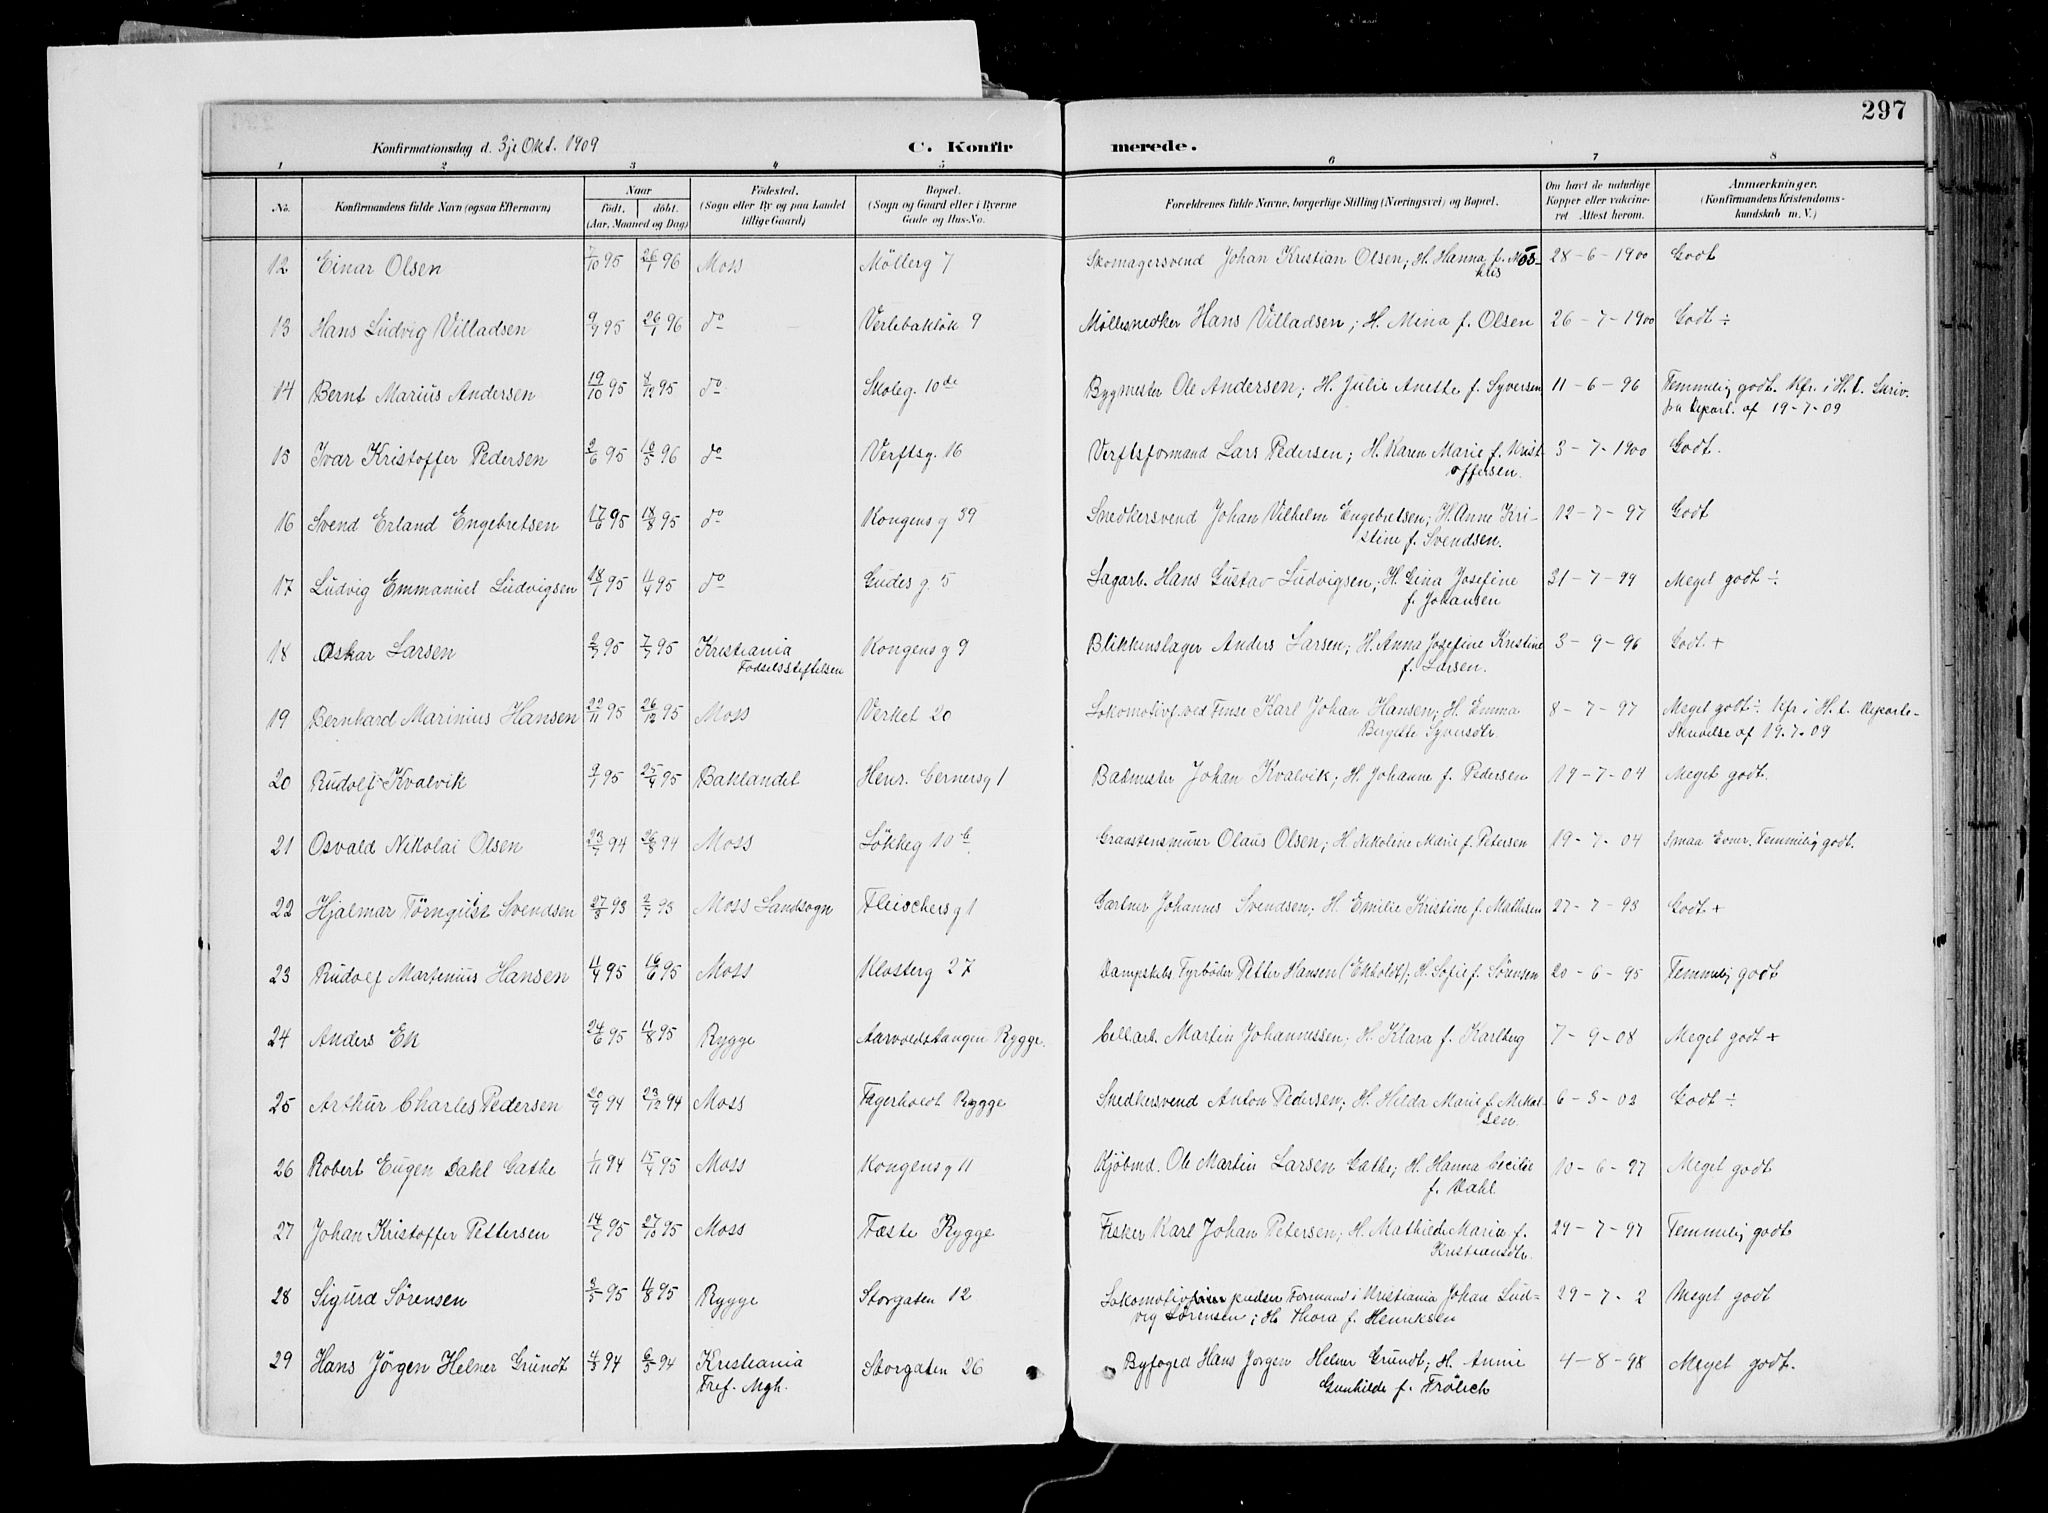 297
Konfirmationsdag d. 3je Okt. 1909 C. Konfirmerede.
1 2 3 4 5 6 7 8
No. Konfirmandens fulde Navn (ogsaa Efternavn) Naar født, døbt. (Aar, Maaned og Dag) Fødested. (Sogn eller By og paa Landet tillige Gaard) Bopæl. (Sogn og Gaard eller i Byerne Gade og Hus-No. Forældrenes fulde Navne, borgerlige Stilling (Næringsvei) og Bopæl. Om havt de naturlige Kopper eller vaccineret Attest herom. Anmærkninger. (Konfirmandens Kristendomskundskab m. V.)
12 Einar Olsen 7/10 95 26/1 96 Moss Møllerg 7 Skomagersvend Johan Kristian Olsen; H. Hanna f. 28-6-1900 Godt
13 Hans Ludvig Villadsen 9/9 95 26/1 96 do Verlebakløk 9 Møllesnedker Hans Villadsen; H. Mina f. Olsen 26-7-1900 Godt ÷
14 Bernt Marius Andersen 19/10 95 8/12 95 do Skoleg. 10 de Bygmester Ole Andersen; H. Julie Anette f. Syversen 11-6-96 Temmelig godt. Kfr. i H. t. Skriv.
fra Depart. af 19-7-09
15 Ivar Kristoffer Pedersen 2/6 95 10/5 96 do Verftsg. 16 Verftsformand Lars Pedersen; H. Karen Marie f. Krist- 3-7-1900 Godt.
offersen.
16 Svend Erland Engebretsen 17/6 95 18/8 95 do Kongens g 39 Snedkersvend Johan Vilhelm Engebretsen; H. Anne Kri- 12-7-97 Godt
stine f. Svendsen.
17 Ludvig Emmanuel Ludvigsen 18/1 95 11/4 95 do Gudes g. 5 Sagarb. Hans Gustav Ludvigsen; H. Gina Josefine 31-7-99 Meget godt ÷
f. Johansen
18 Oskar Larsen 2/7 95 7/7 95 Kristiania Kongens g 9 Blikkenslager Anders Larsen; H. Anna Josefine Kristine 3-9-96 Godt +
Fødselsstiftelsen f. Larsen.
19 Bernhard Marinius Hansen 22/11 95 26/12 95 Moss Verket 20 Lokomotivf. ved Finse Karl Johan Hansen; H. Emma 8-7-97 Meget godt ÷. Kfr i H. t. Departe-
Bergette Syversdtr. Skrivelse af 19-7-09
20 Rudolf Kvalvik 9/1 95 25/4 95 Baklandet Henr. Gernersg 1 Badmester Johan Kvalvik; H. Johanne f. Pedersen 19-7-04 Meget godt.
21 Osvald Nikolai Olsen 23/7 94 26/8 94 Moss Løkkeg 10 b Granstensmurer Olaus Olsen; H. Nikoline Marie f. Petersen 19-7-04 Smaa Evner. Temmelig godt.
22 Hjalmar Törnquist Svendsen 27/3 93 2/7 93 Moss Landsogn Fleischersg 1 Gartner Johannes Svendsen; H. Emilie Kristine f. Mathisen 27-7-93 Godt +
23 Rudolf Martenius Hansen 11/4 95 16/6 95 Moss Klosterg 27 Dampskibs Fyrbøder Petter Hansen (Ekholdt); H. Sofie f. Sørensen 20-6-95 Temmelig godt
24 Anders Ek 24/6 95 11/8 95 Rygge Aarvoldstangen Rygge. Cellarb. Martin Johannessen; H. Klara f. Karlberg 7-9-08 Meget godt +
25 Arthur Charles Pedersen 20/9 94 23/12 94 Moss Fagerholdt Rygge Snedkersvend Anton Pedersen; H. Hilda Marie f. Mikal- 6-3-02 Godt ÷
sen.
26 Robert Eugen Dahl Gathe 1/11 94 15/4 95 Moss Kongensg 11 Kjøbmd. Ole Martin Larsen Gathe; H. Hanna Cecilie 10-6-97 Meget godt
f. Dahl.
27 Johan Kristoffer Pettersen 14/7 95 27/10 95 Moss Fæste Rygge Fisker Karl Johan Petersen; H. Mathilde Maria f. 29-7-97 Temmelig godt
Kristiansdtr.
28 Sigurd Sørensen 3/5 95 4/8 95 Rygge Storgaten 12 Lokomotiv pudser Formand i Kristiania Johan Lud- 29-7-2 Meget godt
vig Sørensen; H. Thora f. Henriksen
29 Hans Jørgen Helner Grundt 4/3 94 6/5 94 Kristiania Storgaten 26 Byfoged Hans Jørgen Helner Grundt; H. Annie 4-8-98 Meget godt.
Tref. Mgh. Gunhilde f. Frölich